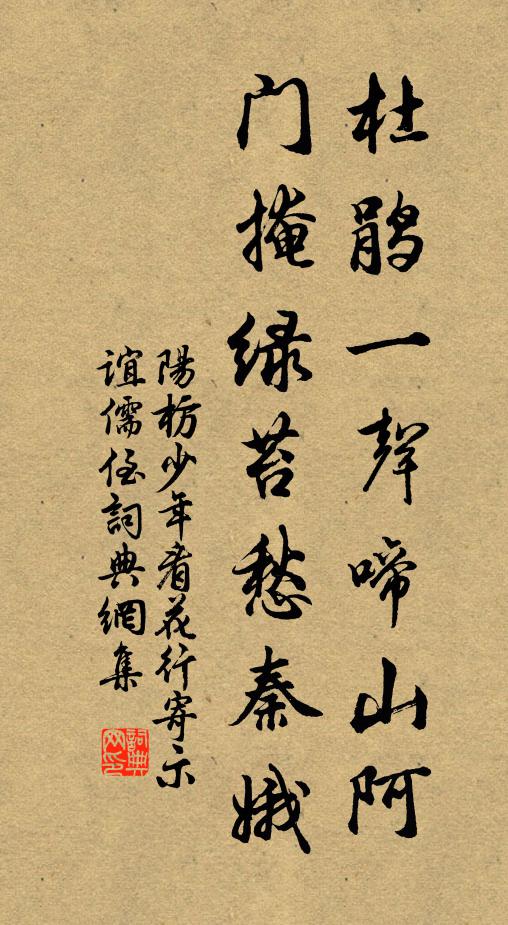 杜鹃一聲啼山阿
门掩绿苔愁秦娥
陽枋少年看花行寄示
誼儒侄詞典網集
詞典网印